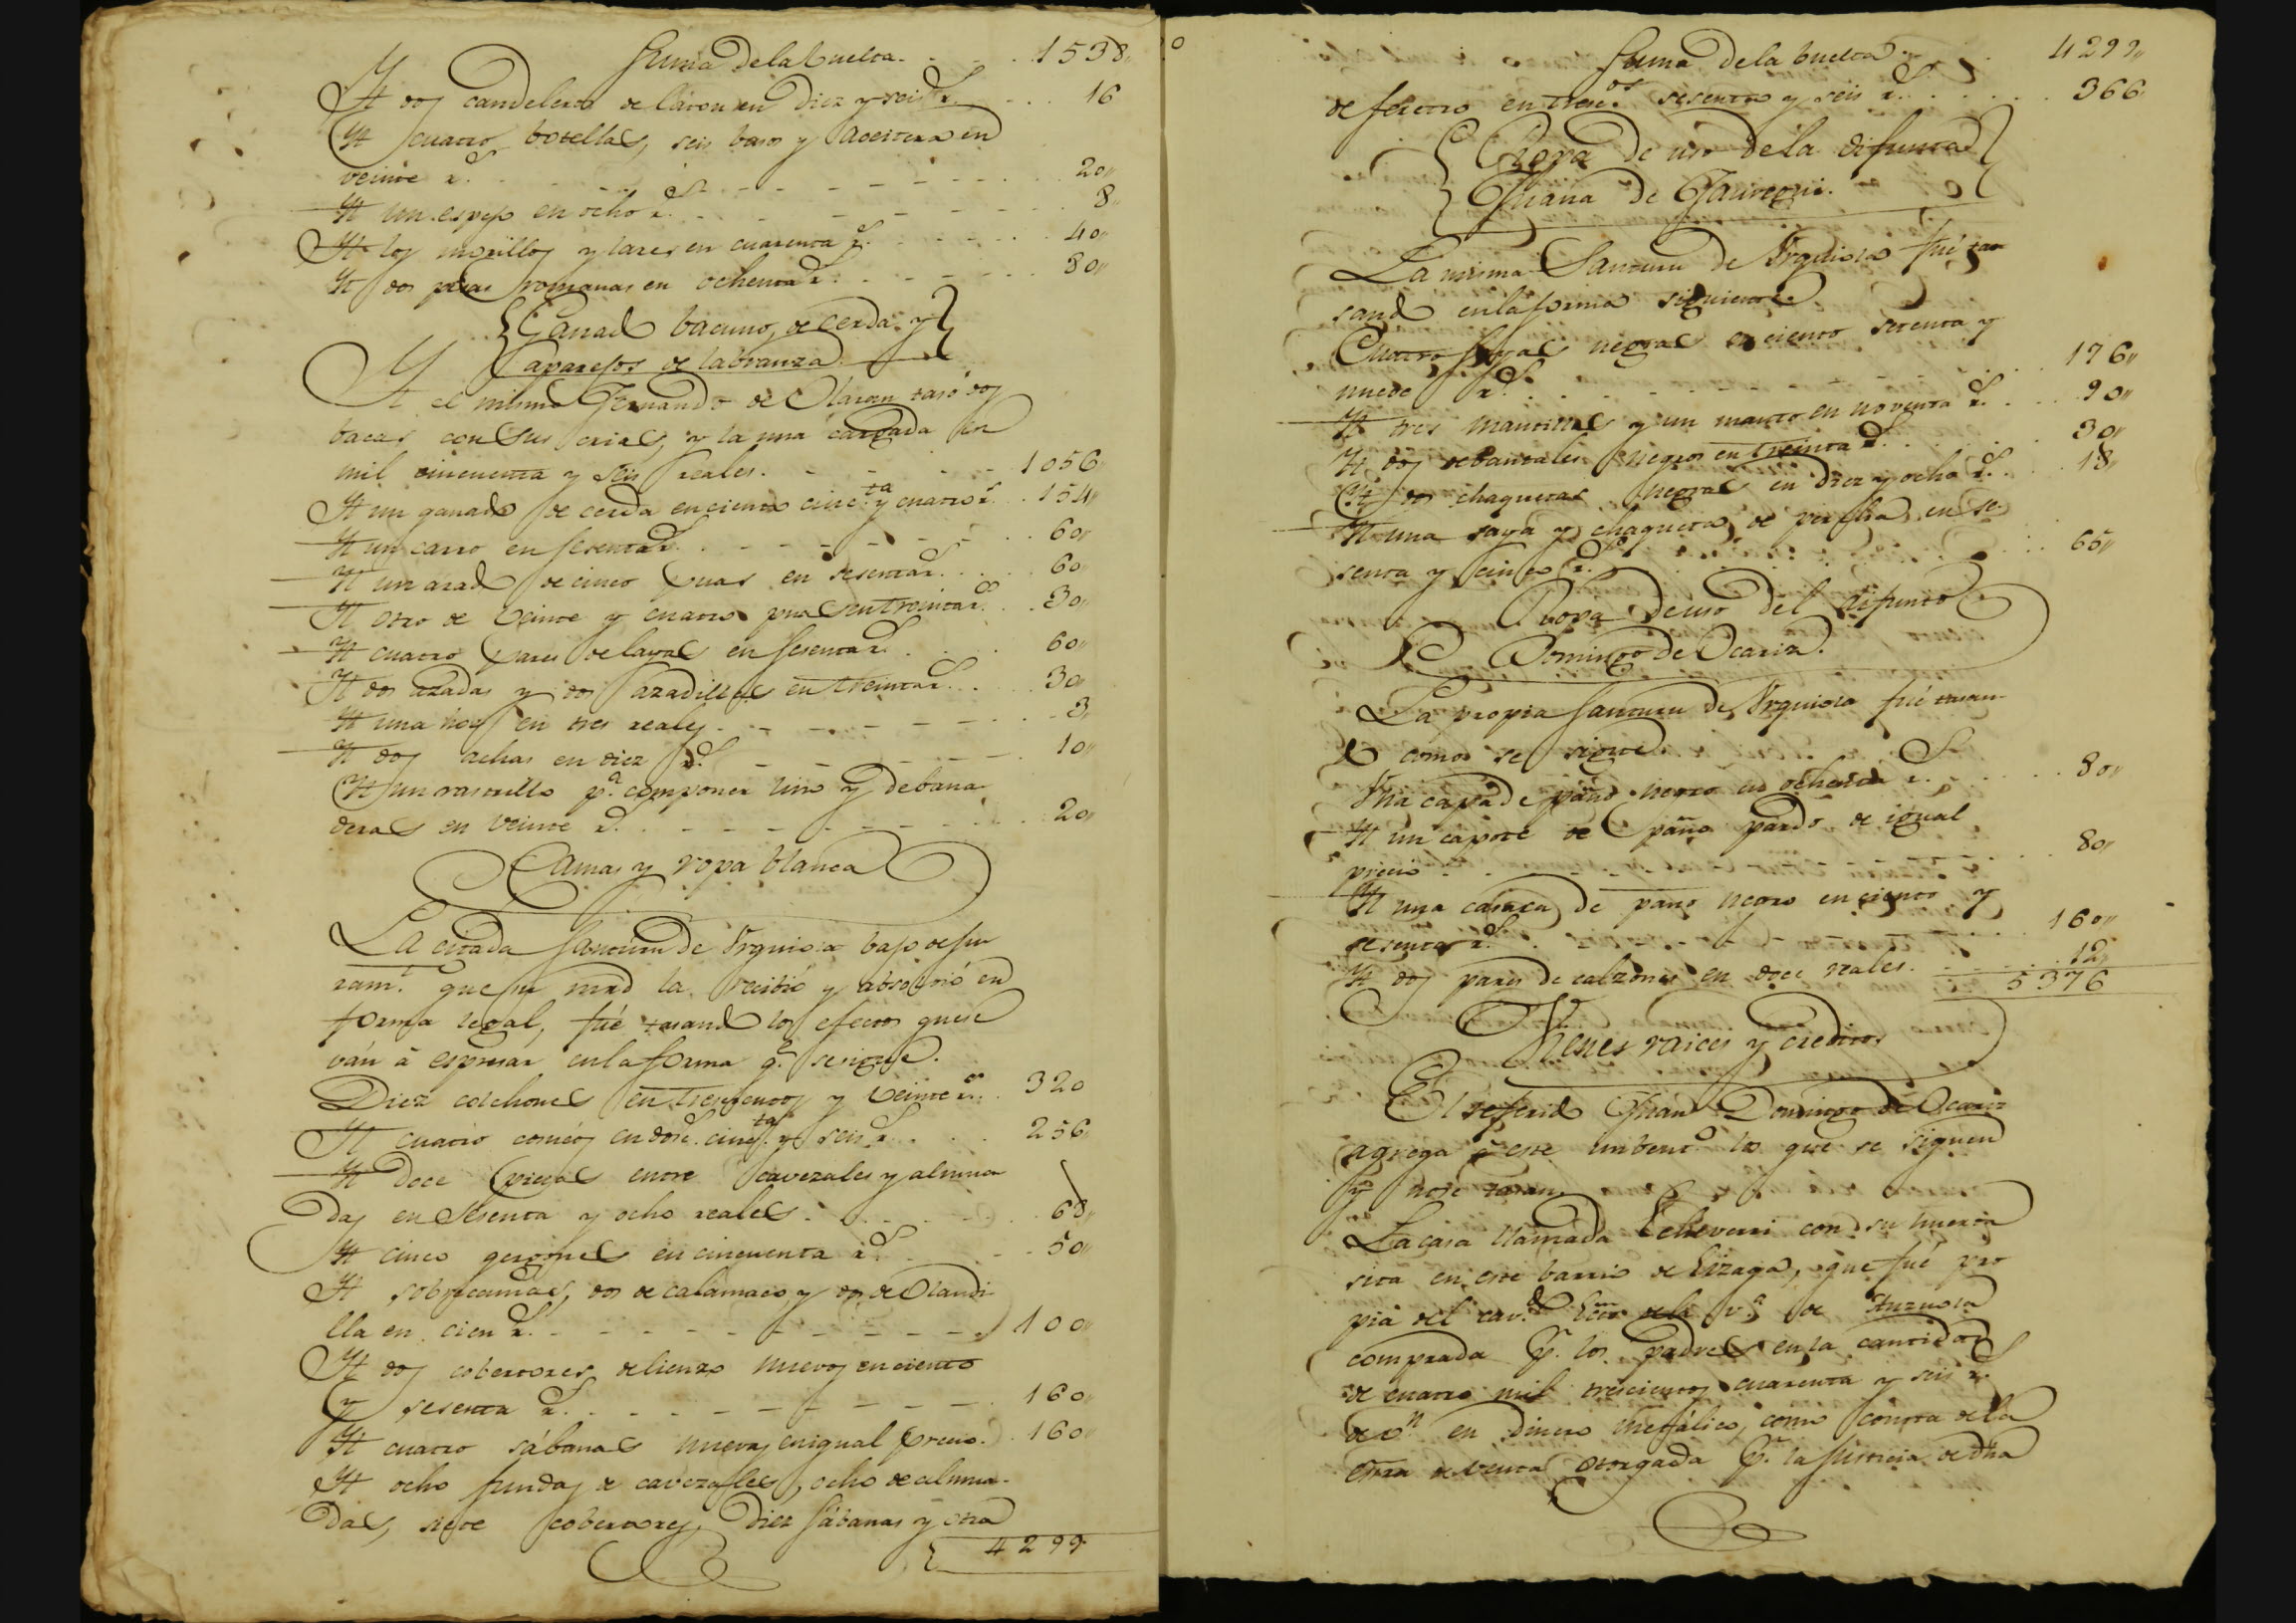 Suma de la buelta . . . 1538"
Yt dos candeleros de laton en diez y seis rs. . . . 16
Yt cuatro botellas, seis basos y aceitera en
veinte rs. . . . 20"
Yt un espejo en ocho rs. . . . 8"
Yt los morillos y lares en cuarenta rs. . . . 40"
Yt dos pesas romanas en ochenta rs. . . . 80"
Ganado bacuno, de cerda, y
aparejos de labranza.
Yt el mismo Fernando de Olaran tasó dos
bacas con sus crias, y la una cargada en
mil cincuenta y seis reales. . . . 1056"
Yt un ganado de cerda en ciento cincta. y cuatro rs. . 154"
Yt un carro en sesenta rs. . . . 60"
Yt un arado de cinco puas en sesenta rs. . . . 60
Yt otro de veinte y cuatro puas en treinta rs. . . 30"
Yt cuatro pares de layas en sesenta rs. . . . 60"
Yt dos azadas y dos azadillas en treinta rs. . . . 30"
Yt una hoz en tres reales . . . 3"
Yt dos achas en diez rs. . . . 10"
Yt un rastrillo pa. componer lino y debana
deras en veinte rs. . . . 20"
Camas y ropa blanca
La citada Santuru de Urquiola bajo de su
ramto. que su mrd la recibió y absolvió en
forma legal, fué tasando los efectos que se
ván á espresar en la forma qe. se sigue.
Diez colchones en trescientos y veinte rs. 320
Yt cuatro coméos en dosc. cincta. y seis rs. . . . 256
Yt doce piezas entre cavezales y almoa
das en sesenta y ocho reales. . . . 68"
Yt cinco gergones en cincuenta rs. . . . 50"
Yt sobrecamas, dos de calamaco, y dos de Olandi
lla en cien rs. . . . 100"
Yt dos cobertores de lienzo nuevos en ciento
y sesenta rs. . . . 160"
Yt cuatro sábanas nuevas en igual precio. . 160"
Yt ocho fundas de cavezales, ocho de almoa-
das, siete cobertores, diez sábanas y otra
4299
Suma de la buelta . . . 4299"
de feretro en tresc.os sesenta y seis rs. . . . 366
Ropa de uso de la difunta
Juana de Jauregui.
La misma Santuru de Urquiola fué ta
sando en la forma siguiente.
Cuatro sayas negras en ciento setenta y
nuebe rs. . . . 176"
Yt tres mantillas y un manto en noventa rs. . . . 90"
Yt dos debantales negros en treinta rs. . . . 30"
Yt dos chaquetas negras en diez y ocho rs. . . . 18"
Yt una saya y chaqueta de percha en se-
senta y cinco rs. . . . 65"
Ropa de uso del difunto
Domingo de Ocariz.
La propia Santuru de Urquiola fué tasan-
do como se sigue.
Una capa de paño negro en ochenta rs. . . . 80"
Yt un capote de paño pardo de igual
precio . . . 80"
Yt una casaca de paño negro en ciento y
sesenta rs. . . . 160"
Yt dos pares de calzones en doce reales. . . . 12"
5376
Vienes raices y creditos
El referido Juan Domingo de Ocariz
agrega á este imbento. los que se siguen
y no se tasan.
La casa llamada Echeverri con su huerta
sita en este barrio de Elizaga, que fué pro
pia del cav.do Ecco. de la va. de Anzuola
comprada pr. los padres en la cantidad
de cuatro mil trescientos cuarenta y seis rs.
de von. en dinero metálico, como consta de la
Esra. de venta otorgada pr. la Justicia de dha